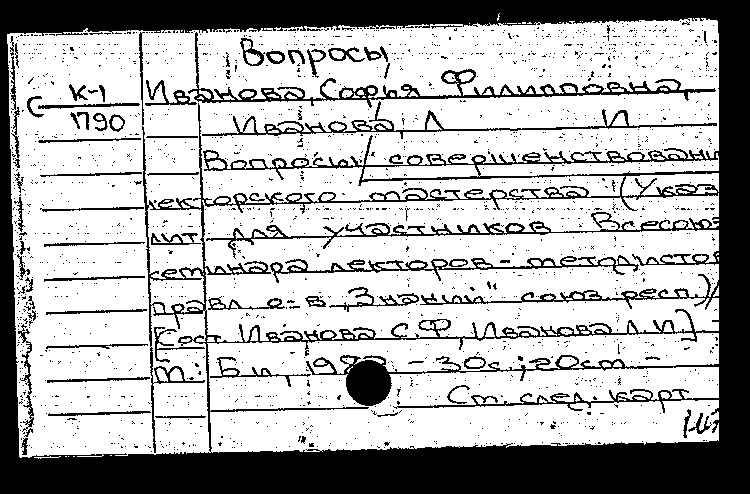 Вопросы
С К-1 Иванова, Софья Филипповна,
1790 Иванова, Л И
Вопросы совершенствовани
лекторского мастерства (Указ
лит для участников Всесоюз
семинара лекторов-методистов
правл о-в „Знаний" союз. респ.)/
[Сост. Иванова С.Ф, Иванова Л.И.]
М.: Б и, - 30с.; 20см -
Ст. след. карт